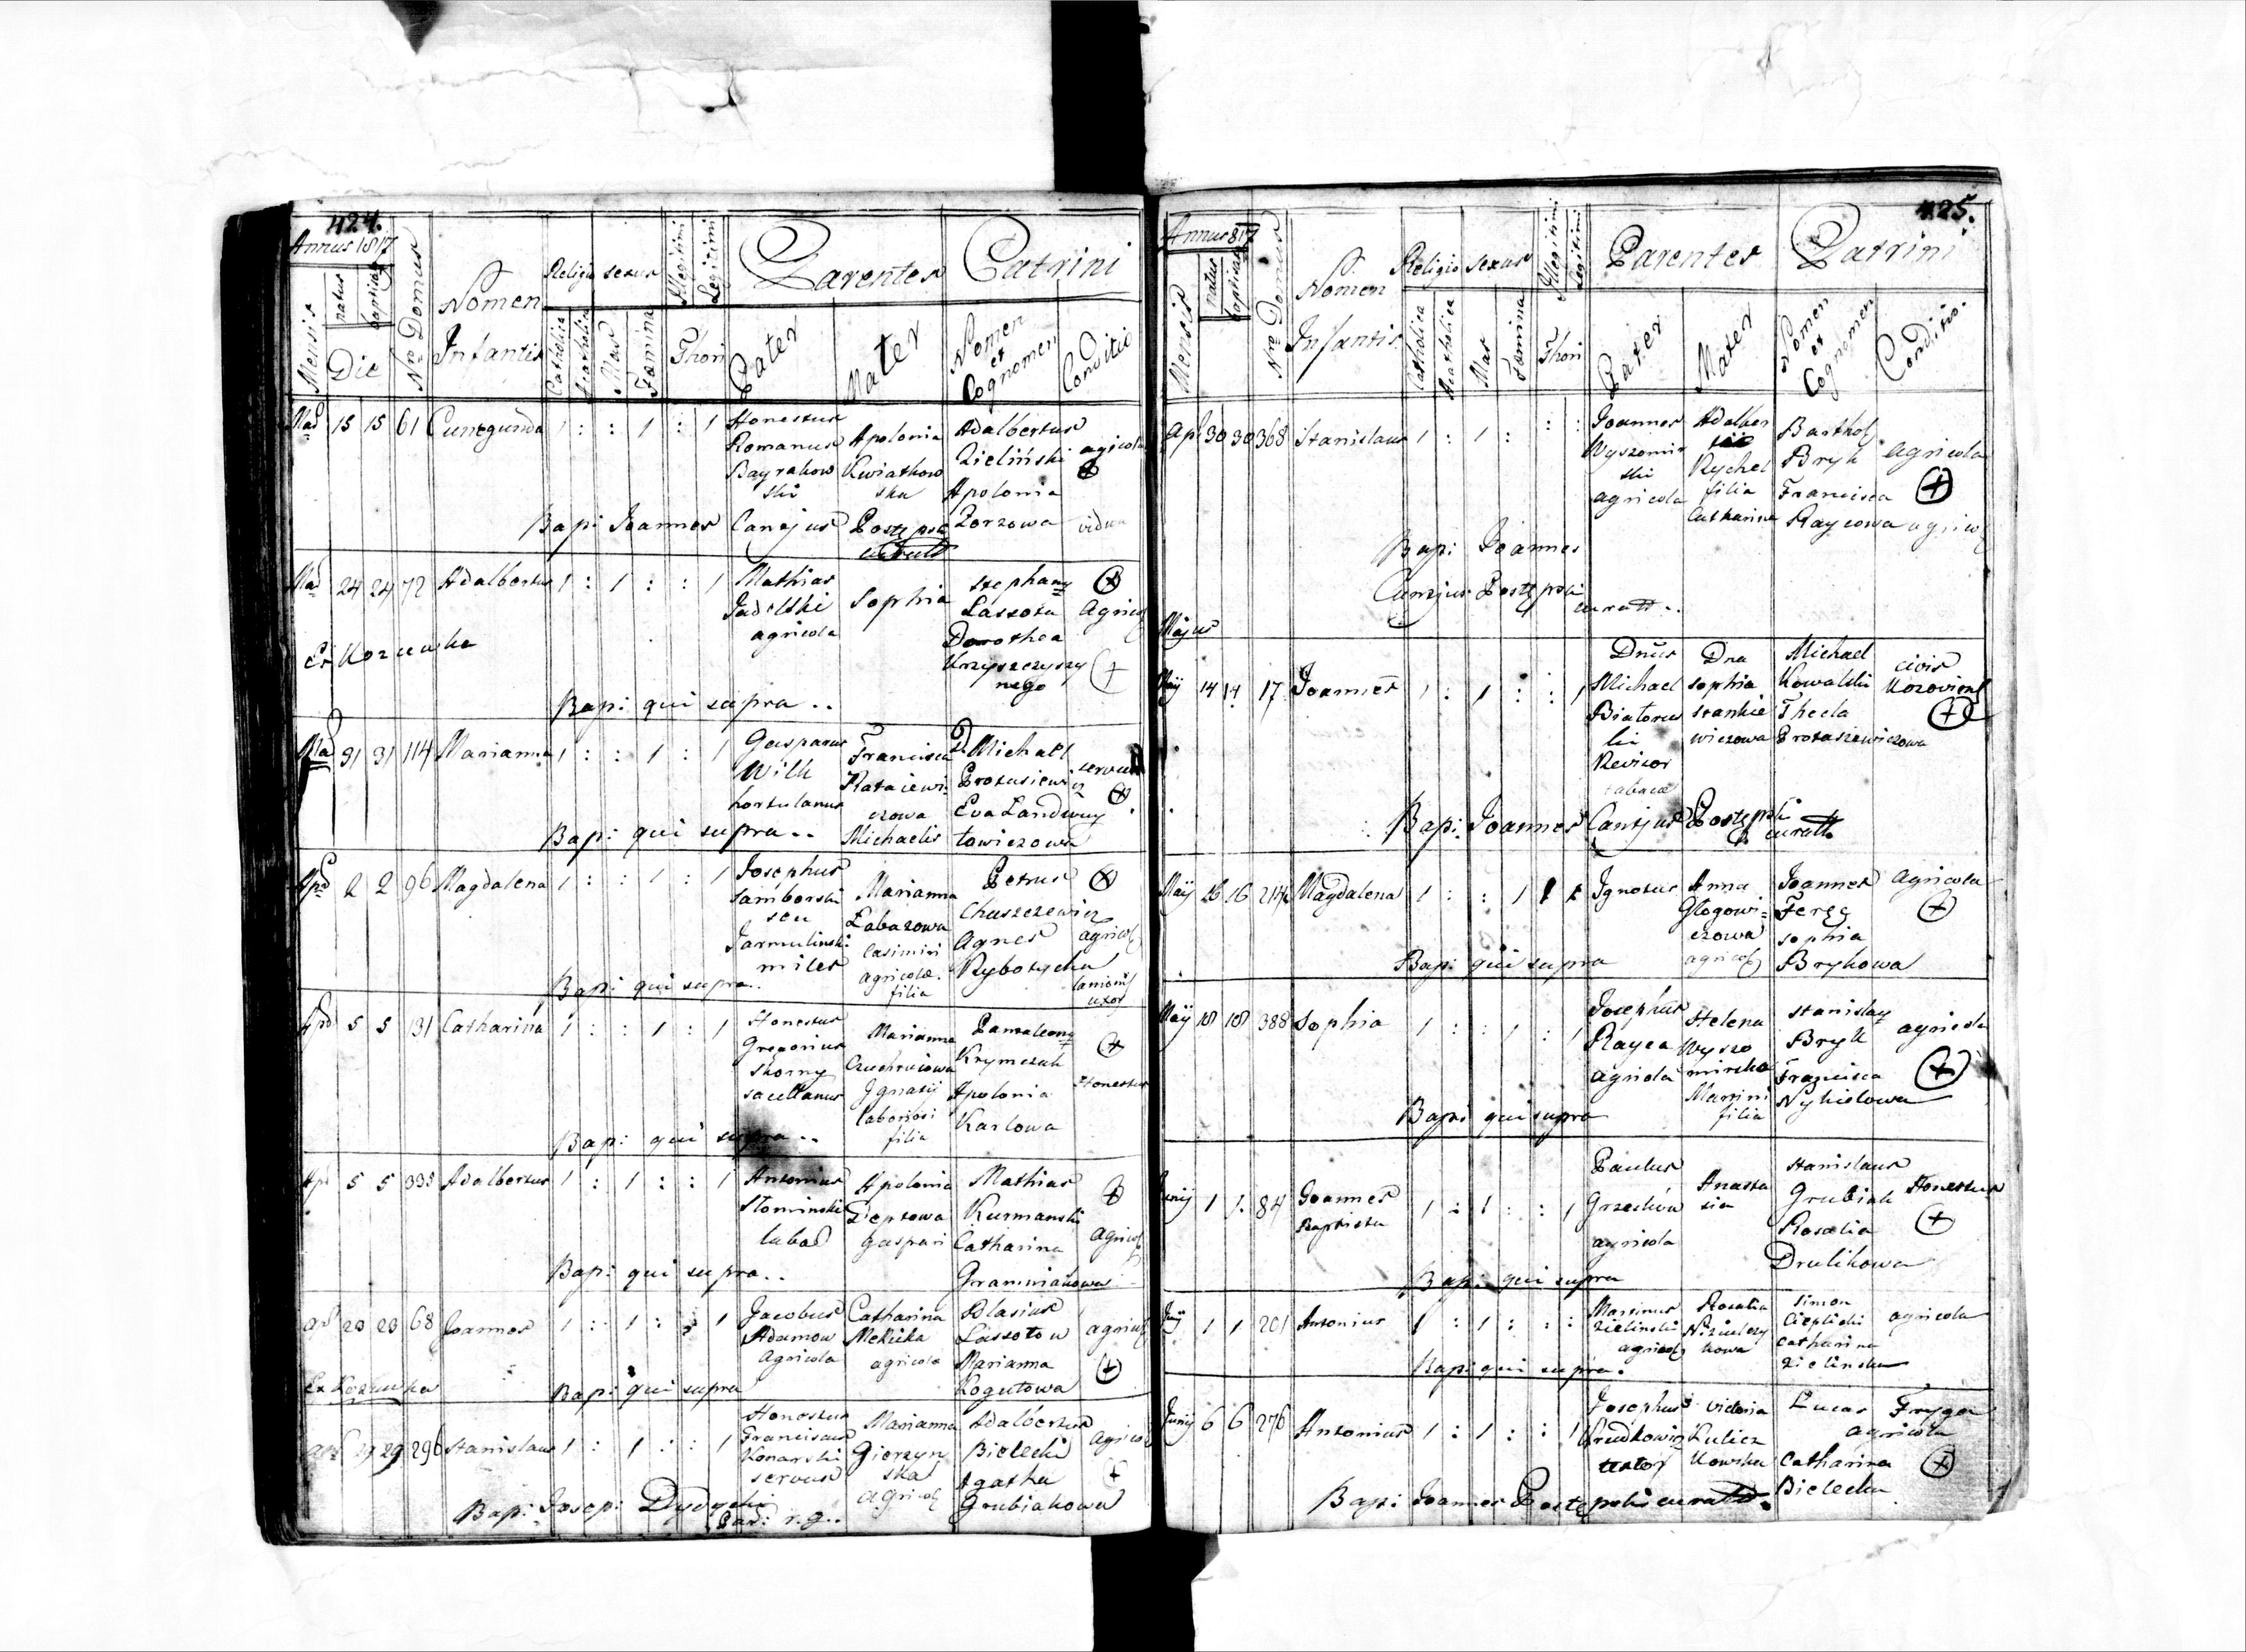 424.
Annus 1817
Mensis
natus
baptisatus
Die
Nro Domus
Nomen
Infantis
Religio
sexus
Catholica
Acatholica
Mas
Fæmina
Illegitimi
Legitimi
Thori
Parentes
Pater
Mater
Patrini
Nomen
et
Cognomen
Conditio
15 15 61 Cunegunda 1 : : 1 : 1
Honestus
Romanus
Bayrakow
ski
Apolonia
Kwiatkow
ska
Adalbertus
Zieliński
Apolonia
Zorzowa
agricola
vidua
Bapi: Joannes Cantjus Postępski
24 24 72 Adalbertus 1 : 1 : : 1
Mathias
agricola
Sophia
Stephany
Lassota
Dorothea
Krzyszczyszy
nego
Agricol
Ex Kozuwka
Bapi: qui supra ..
31 31 114 Marianna 1 : : 1 : 1
Gasparus
Wilk
hortulanus
Francisca
Rataiewi
czowa
Michaelis
D Michael
Protasiewicz
Eva Landwuy
towiczowa
Bapi: qui supra ..
2 2 96 Magdalena 1 : : 1 : 1
Josephus
Samborski
seu
Jarmulinski
miles
Marianna
Labazowa
Casimiri
agricolæ
filia
Petrus
Chuszczewicz
Agnes
Rybotycka
agricol
uxor
Bapi: qui supra ..
5 5 131 Catharina 1 : : 1 : 1
Honestus
Gregorius
Skorny
sacellanus
Marianna
Ignatij
laboriosi
filia
Pantaleony
Krymczak
Apolonia
Karlowa
Honestus
Bapi: qui supra ..
5 5 335 Adalbertus 1 : 1 : : 1
Antonius
Słominski
Apolonia
Deptowa
Gaspari
Mathias
Kurmanski
Catharina
Graniniakowa
Agricol
Bapi: qui supra ..
20 20 68 Joannes 1 : 1 : : 1
Jacobus
Adamow
Agricola
Catharina
Mekicka
agricolæ
Blasius
Lassotow
Marianna
Kogutowa
agricol
Ex Kozuwka
Bapi: qui supra
29 29 296 Stanislaus 1 : 1 : : 1
Honestus
Franciscus
Konarski
servus
Marianna
Gierzyn
ska
agricol
Adalbertus
Bielecki
Agatha
Grubiakowa
Agricol
Bapi: Josep: Dydycki
425.
Annus 817
Mensis
natus
baptisatus
Nro Domus
Nomen
Infantis
Religio
sexus
Catholica
Acatholica
Mas
Fæmina
Illegitimi
Legitimi
Thori
Parentes
Pater
Mater
Patrini
Nomen
et
Cognomen
Conditio.
Apl 30 30 368 Stanislaus 1 : 1 : : :
Joannes
Wyszomir
ski
agricola
Adalber
Rychel
filia
Catharina
Barthol
Bryk
Francisca
Raycowa
Agricola
agricol
Bapi: Joannes
Cantjus Postępski
curatt..
Majus
Maij 14 14 17 Joannes 1 : 1 : : 1
Dnus
Michael
Revisor
tabacæ
Dna
Sophia
Stankie
wiczowa
Michael
Kowalski
Thecla
Protaszewiczowa
civis
Bapi: Joannes Cantjus Postępski
curatt
Maij 16 16 214 Magdalena 1 : : 1
Ignotus
Anna
Głogowi-
czowa
agricol
Joannes
Ferge
Sophia
Brykowa
Agricola
Bapi: qui supra
Maij 18 18 388 Sophia 1 : : 1 : 1
Josephus
Rayca
agricola
Helena
Wyszo
mirska
Martini
filia
Stanislay
Bryk
Francisca
Nykielowa
agricola
Bapi: qui supra
Junij 1 1. 84 Joannes
Baptista 1 : 1 : : 1
Paulus
Grzesków
agricola
Anasta
sia
Stanislaus
Grubiak
Rosalia
Drulikowa
Honestus
Bapi: qui supra
1 1 201 Antonius 1 : 1 : : :
Martinus
Zielinski
agricol
Rosalia
Simon
Cieplicki
Catharina
Zielinska
agricola
Bapi: qui supra.
Junij 6 6 276 Antonius 1 : 1 : : 1
Josephus
Victoria
Lucas Fryga
agricola
Catharina
Bielecka
Bapi: Joannes Postępski curatt.